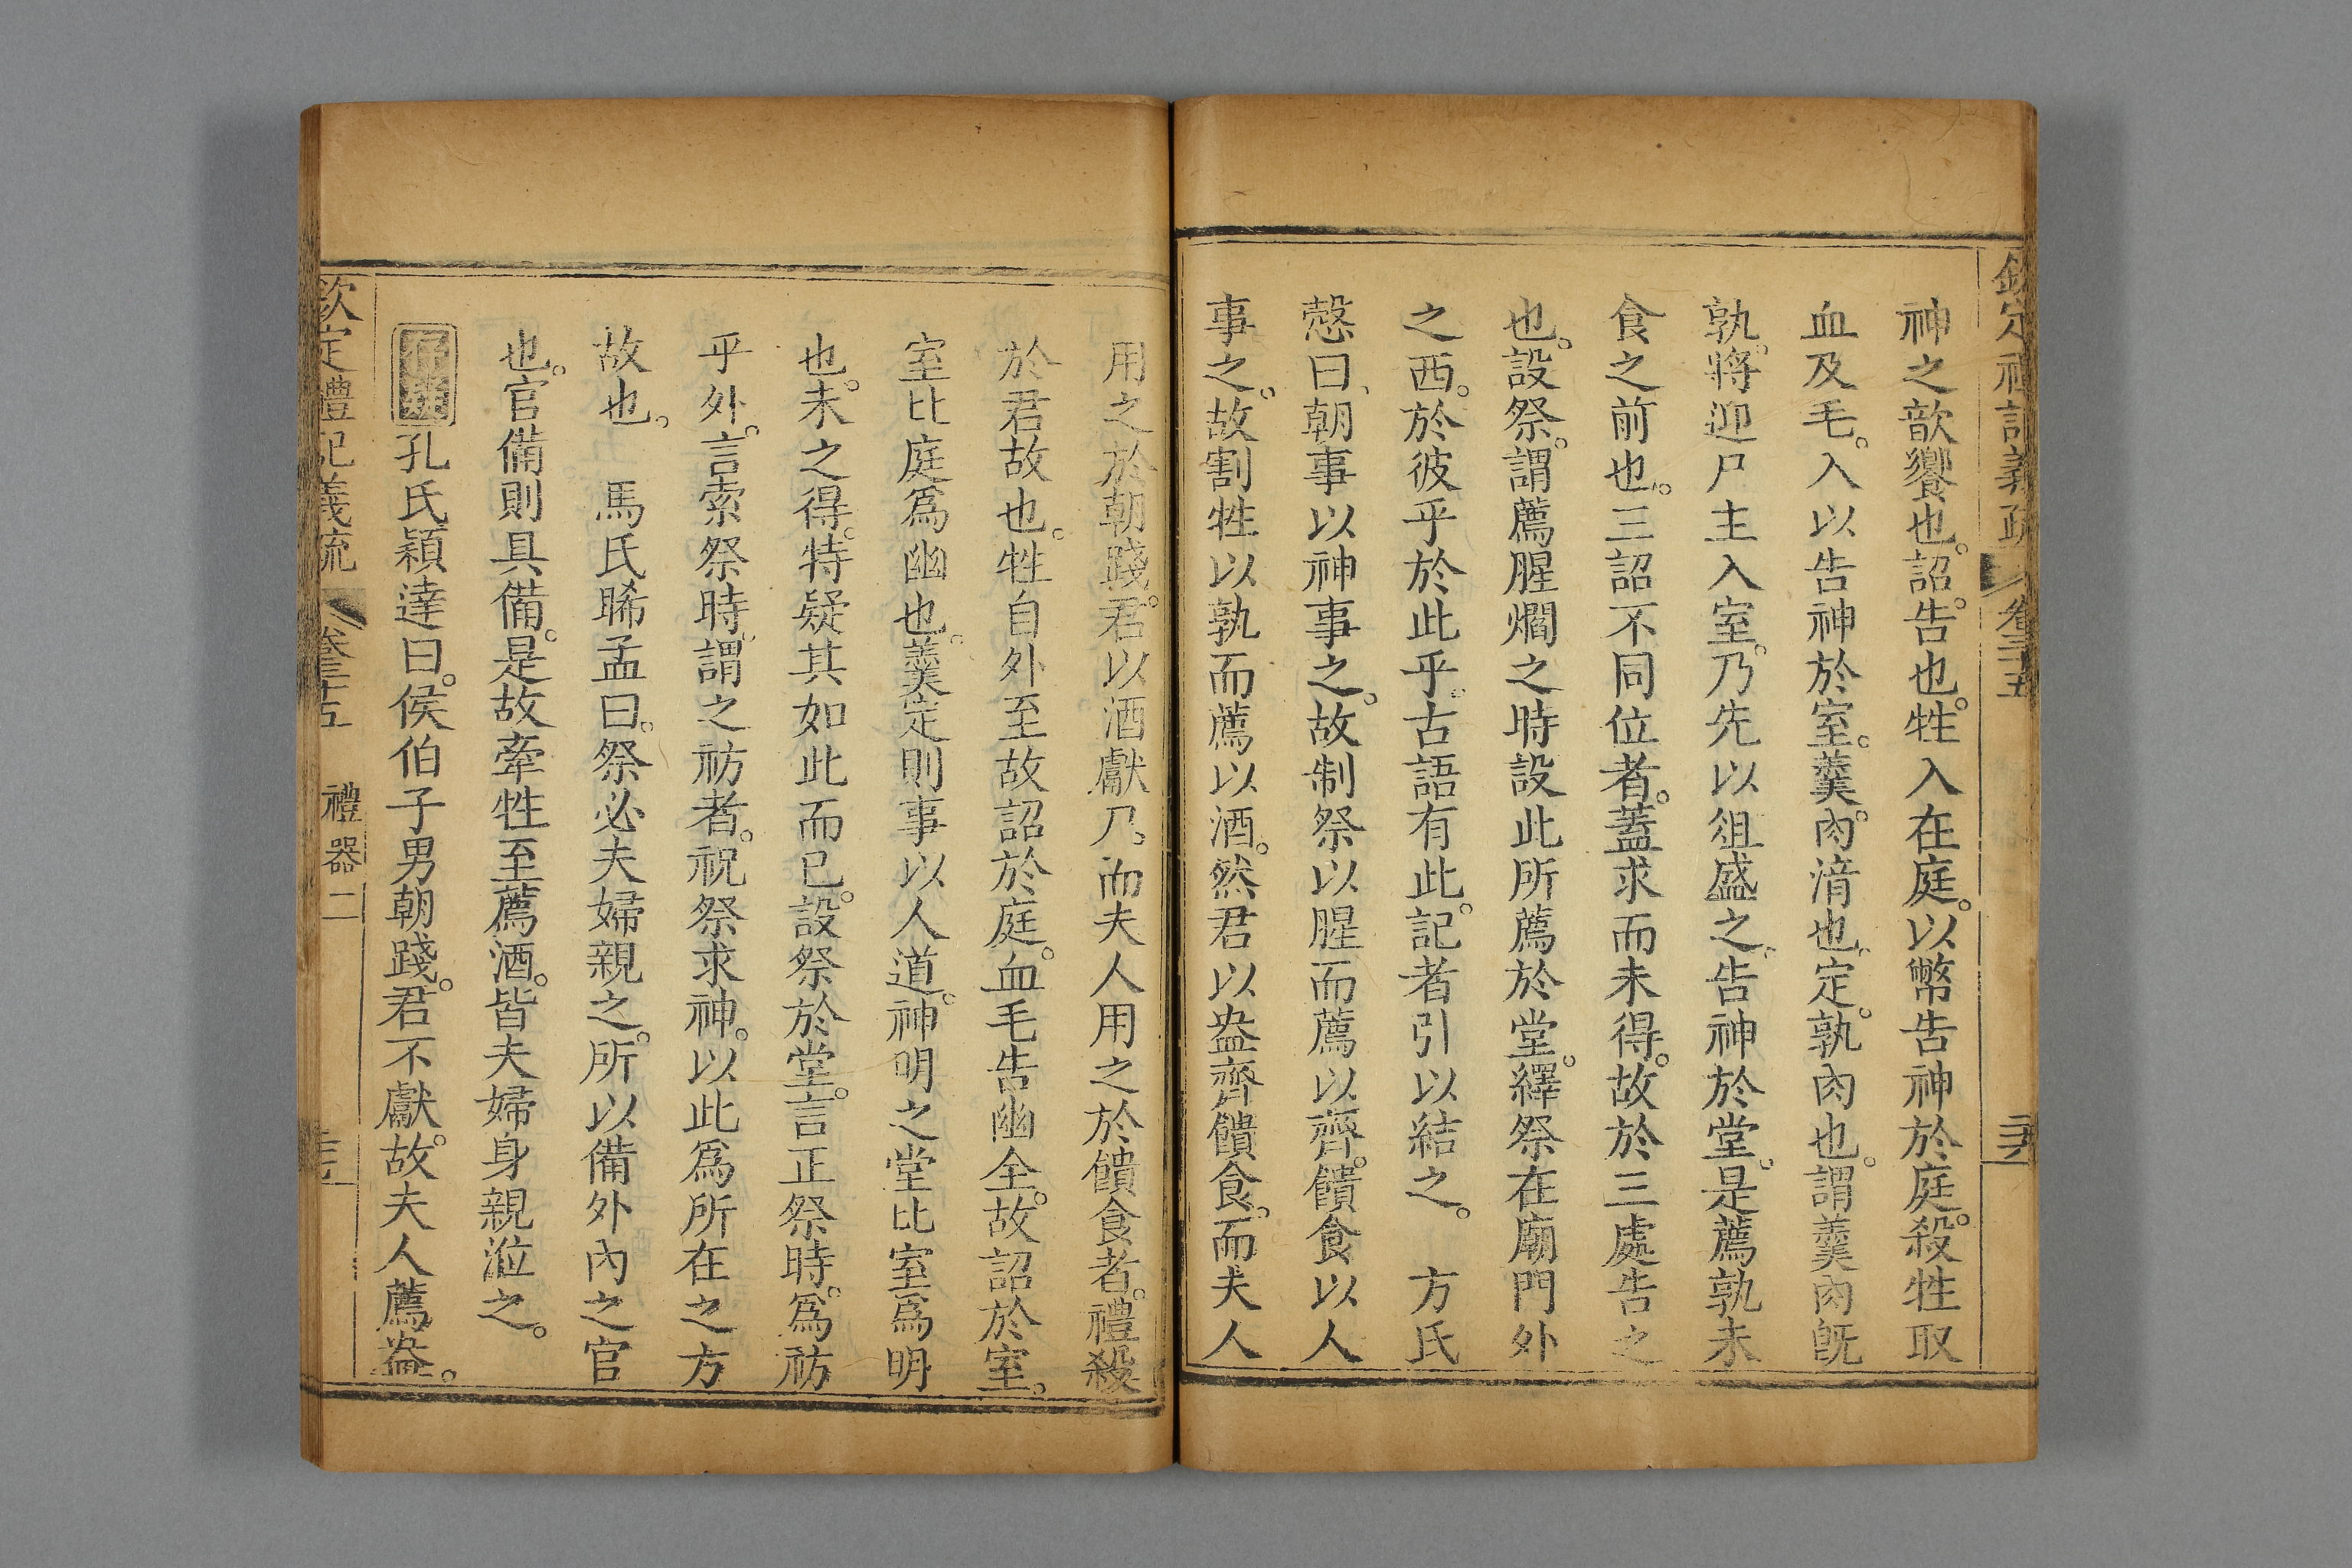 神之歆饗也。詔。告也。牲入在庭。以幣告神於庭。殺牲取
血及毛。入以告神於室。羹。肉湇也。定。孰肉也。謂羹肉旣
孰。將迎尸主入室。乃先以俎盛之。告神於堂。是薦孰未
食之前也。三詔不同位者。蓋求而未得。故於三處告之
也。設祭。謂薦腥爓之時設此所薦於堂。繹祭在廟門外
之西。於彼乎於此乎。古語有此。記者引以結之。 方氏
慤曰、朝事以神事之。故制祭以腥而薦以齊。饋食以人
事之。故割牲以孰而薦以酒。然君以盎齊饋食。而夫人
用之於朝踐。君以酒獻乃。而夫人用之於饋食者。禮殺
於君故也。牲自外至故詔於庭。血毛告幽全。故詔於室。
室比庭爲幽也。羹定則事以人道。神明之堂比室爲明
也。未之得。特疑其如此而已。設祭於堂。言正祭時。爲祊
乎外。言索祭時。謂之祊者。祝祭求神。以此爲所在之方
故也。 馬氏晞孟曰。祭必夫婦親之。所以備外內之官
也。官備則具備。是故牽牲至薦酒。皆夫婦身親涖之。
孔氏穎達曰。侯伯子男朝踐。君不獻。故夫人薦盎。
欽定禮記義疏 卷三十五 禮器二